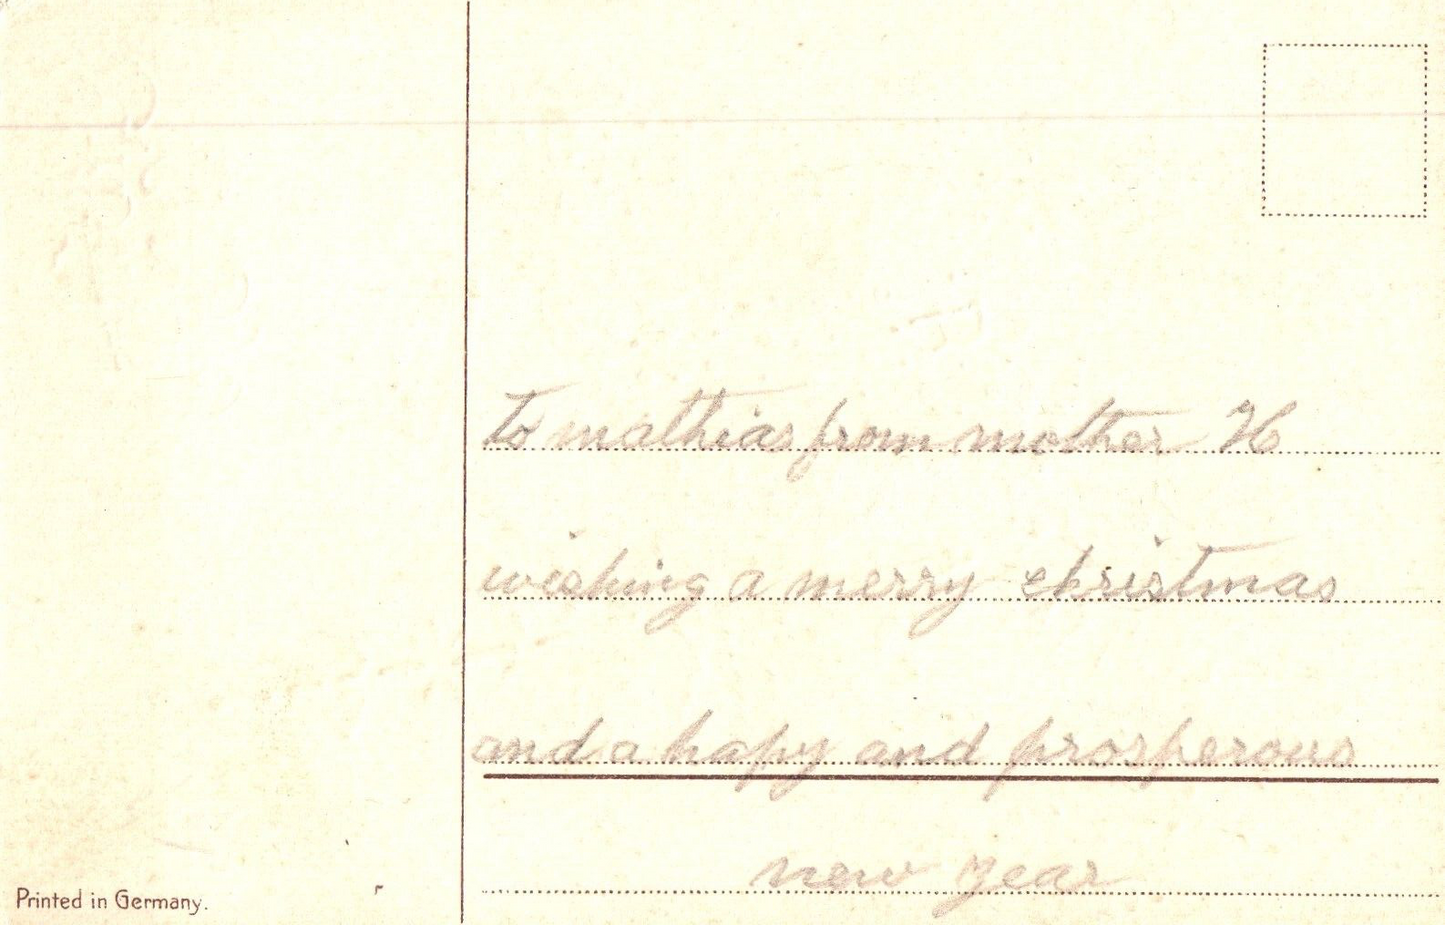 To mathias from mother H
wishing a merry christmas
and a hapy and prosperous
new year
Printed in Germany.